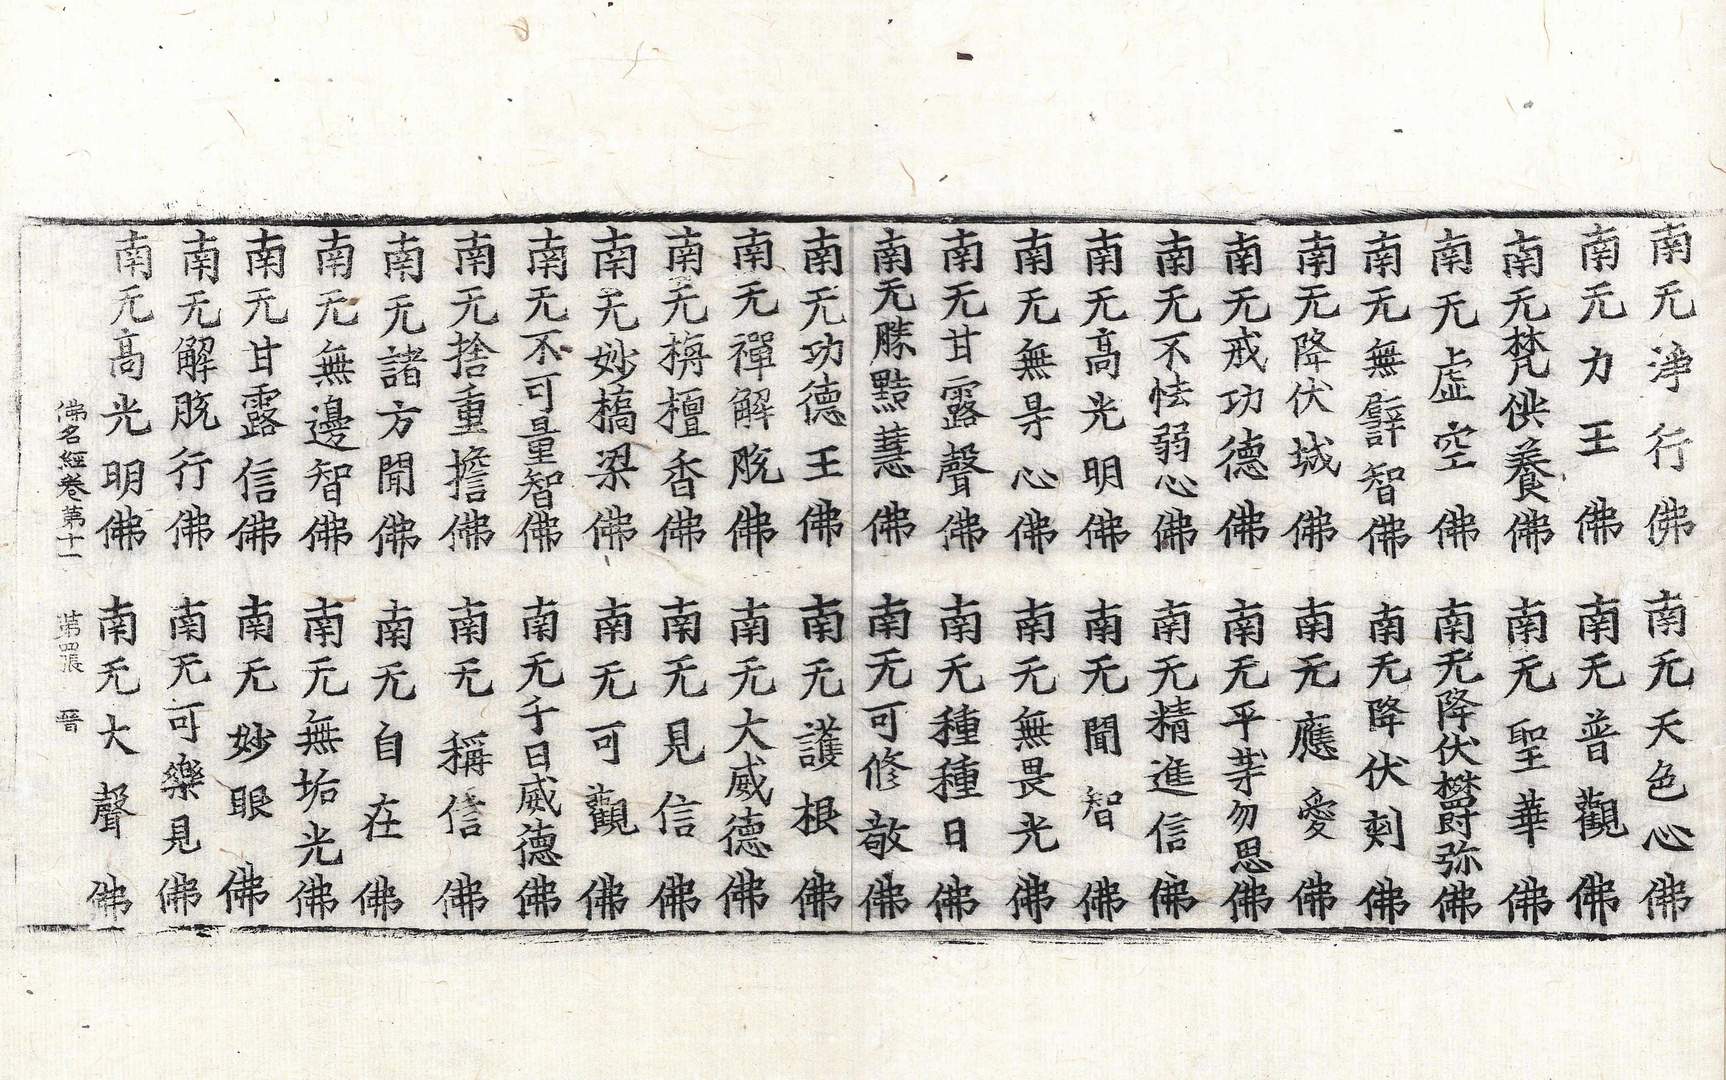 南无淨行佛 南无天色心佛
南无力王佛 南无普觀佛
南无梵供養佛 南无聖華佛
南无虛空佛 南无降伏欝弥佛
南无無礕智佛 南无降伏刺佛
南无降伏城佛 南无應愛佛
南无戒功德佛 南无平等勿思佛
南无不怯弱心佛 南无精進信佛
南无高光明佛 南无聞智佛
南无無㝵心佛 南无無畏光佛
南无甘露聲佛 南无種種日佛
南无勝黠慧佛 南无可修敬佛
南无功德王佛 南无護根佛
南无禪解脫佛 南无大威德佛
南无栴檀香佛 南无見信佛
南无妙橋梁佛 南无可觀佛
南无不可量智佛 南无千日威德佛
南无捨重擔佛 南无稱信佛
南无諸方聞佛 南无自在佛
南无無邊智佛 南无無垢光佛
南无甘露信佛 南无妙眼佛
南无解脫行佛 南无可樂見佛
南无高光明佛 南无大聲佛
佛名經卷第十一 第四張 晉